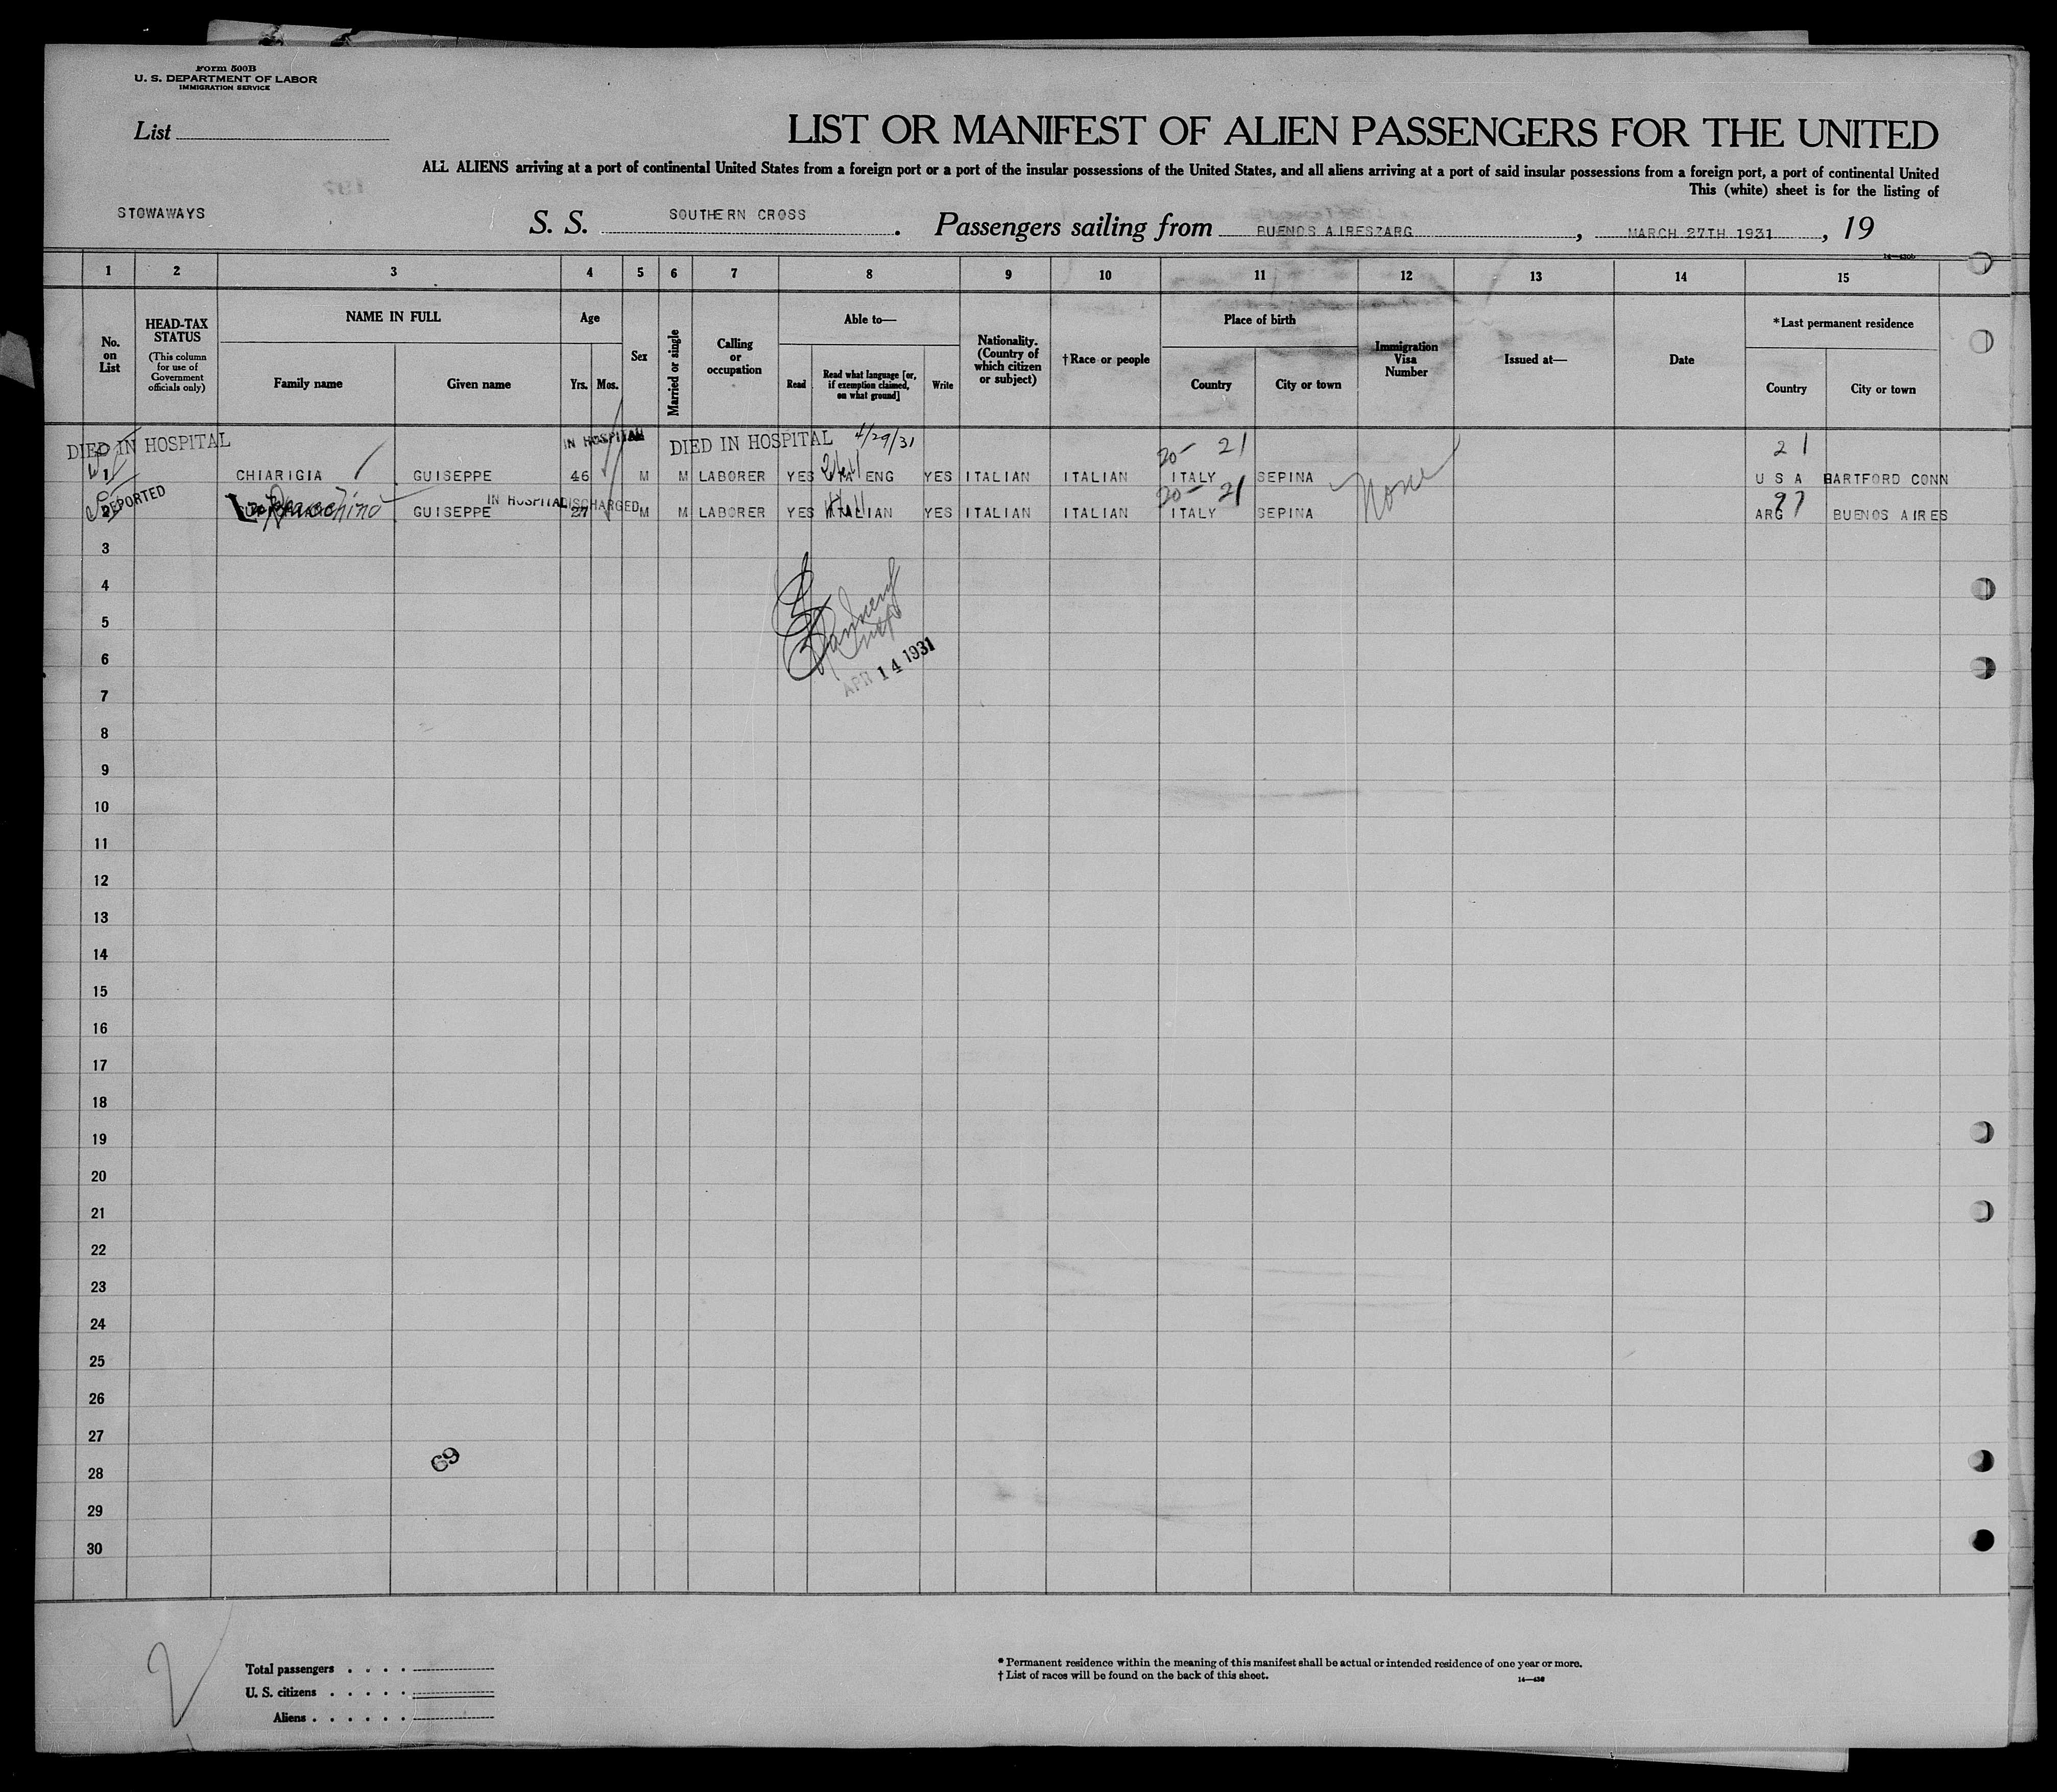 Form 500B
U. S. DEPARTMENT OF LABOR
IMMIGRATION SERVICE
List
LIST OR MANIFEST OF ALIEN PASSENGERS FOR THE UNITED
ALL ALIENS arriving at a port of continental United States from a foreign port or a port of the insular possessions of the United States, and all aliens arriving at a port of said insular possessions from a foreign port, a port of continental United
This (white) sheet is for the listing of
STOWAWAYS
S. S. SOUTHERN CROSS. Passengers sailing from BUENOS AIRESZARG, MARCH 27TH 1931, 19
1 2 3 4 5 6 7 8 9 10 11 12 13 14 15
No. on List
HEAD-TAX STATUS
(This column for use of Government officials only)
NAME IN FULL
Family name
Given name
Age
Yrs. Mos.
Sex
Married or single
Calling or occupation
Able to—
Read
Read what language [or, if exemption claimed, on what ground]
Write
Nationality. (Country of which citizen or subject)
†Race or people
Place of birth
Country
City or town
Immigration Visa Number
Issued at—
Date
*Last permanent residence
Country
City or town
DIED IN HOSPITAL IN HOSPITAL DIED IN HOSPITAL 4/29/31 20- 21 21
1 CHIARIGIA GUISEPPE 46 M M LABORER YES ITA ENG YES ITALIAN ITALIAN ITALY SEPINA None U S A HARTFORD CONN
DEPORTED IN HOSPITAL DISCHARGED 20- 21 97
2 GUISEPPE 27 M M LABORER YES ITALIAN YES ITALIAN ITALIAN ITALY SEPINA ARG BUENOS AIRES
3
4
5
6
APR 14 1931
7
8
9
10
11
12
13
14
15
16
17
18
19
20
21
22
23
24
25
26
27
69
28
29
30
Total passengers
U. S. citizens
Aliens
* Permanent residence within the meaning of this manifest shall be actual or intended residence of one year or more.
† List of races will be found on the back of this sheet.
14—430